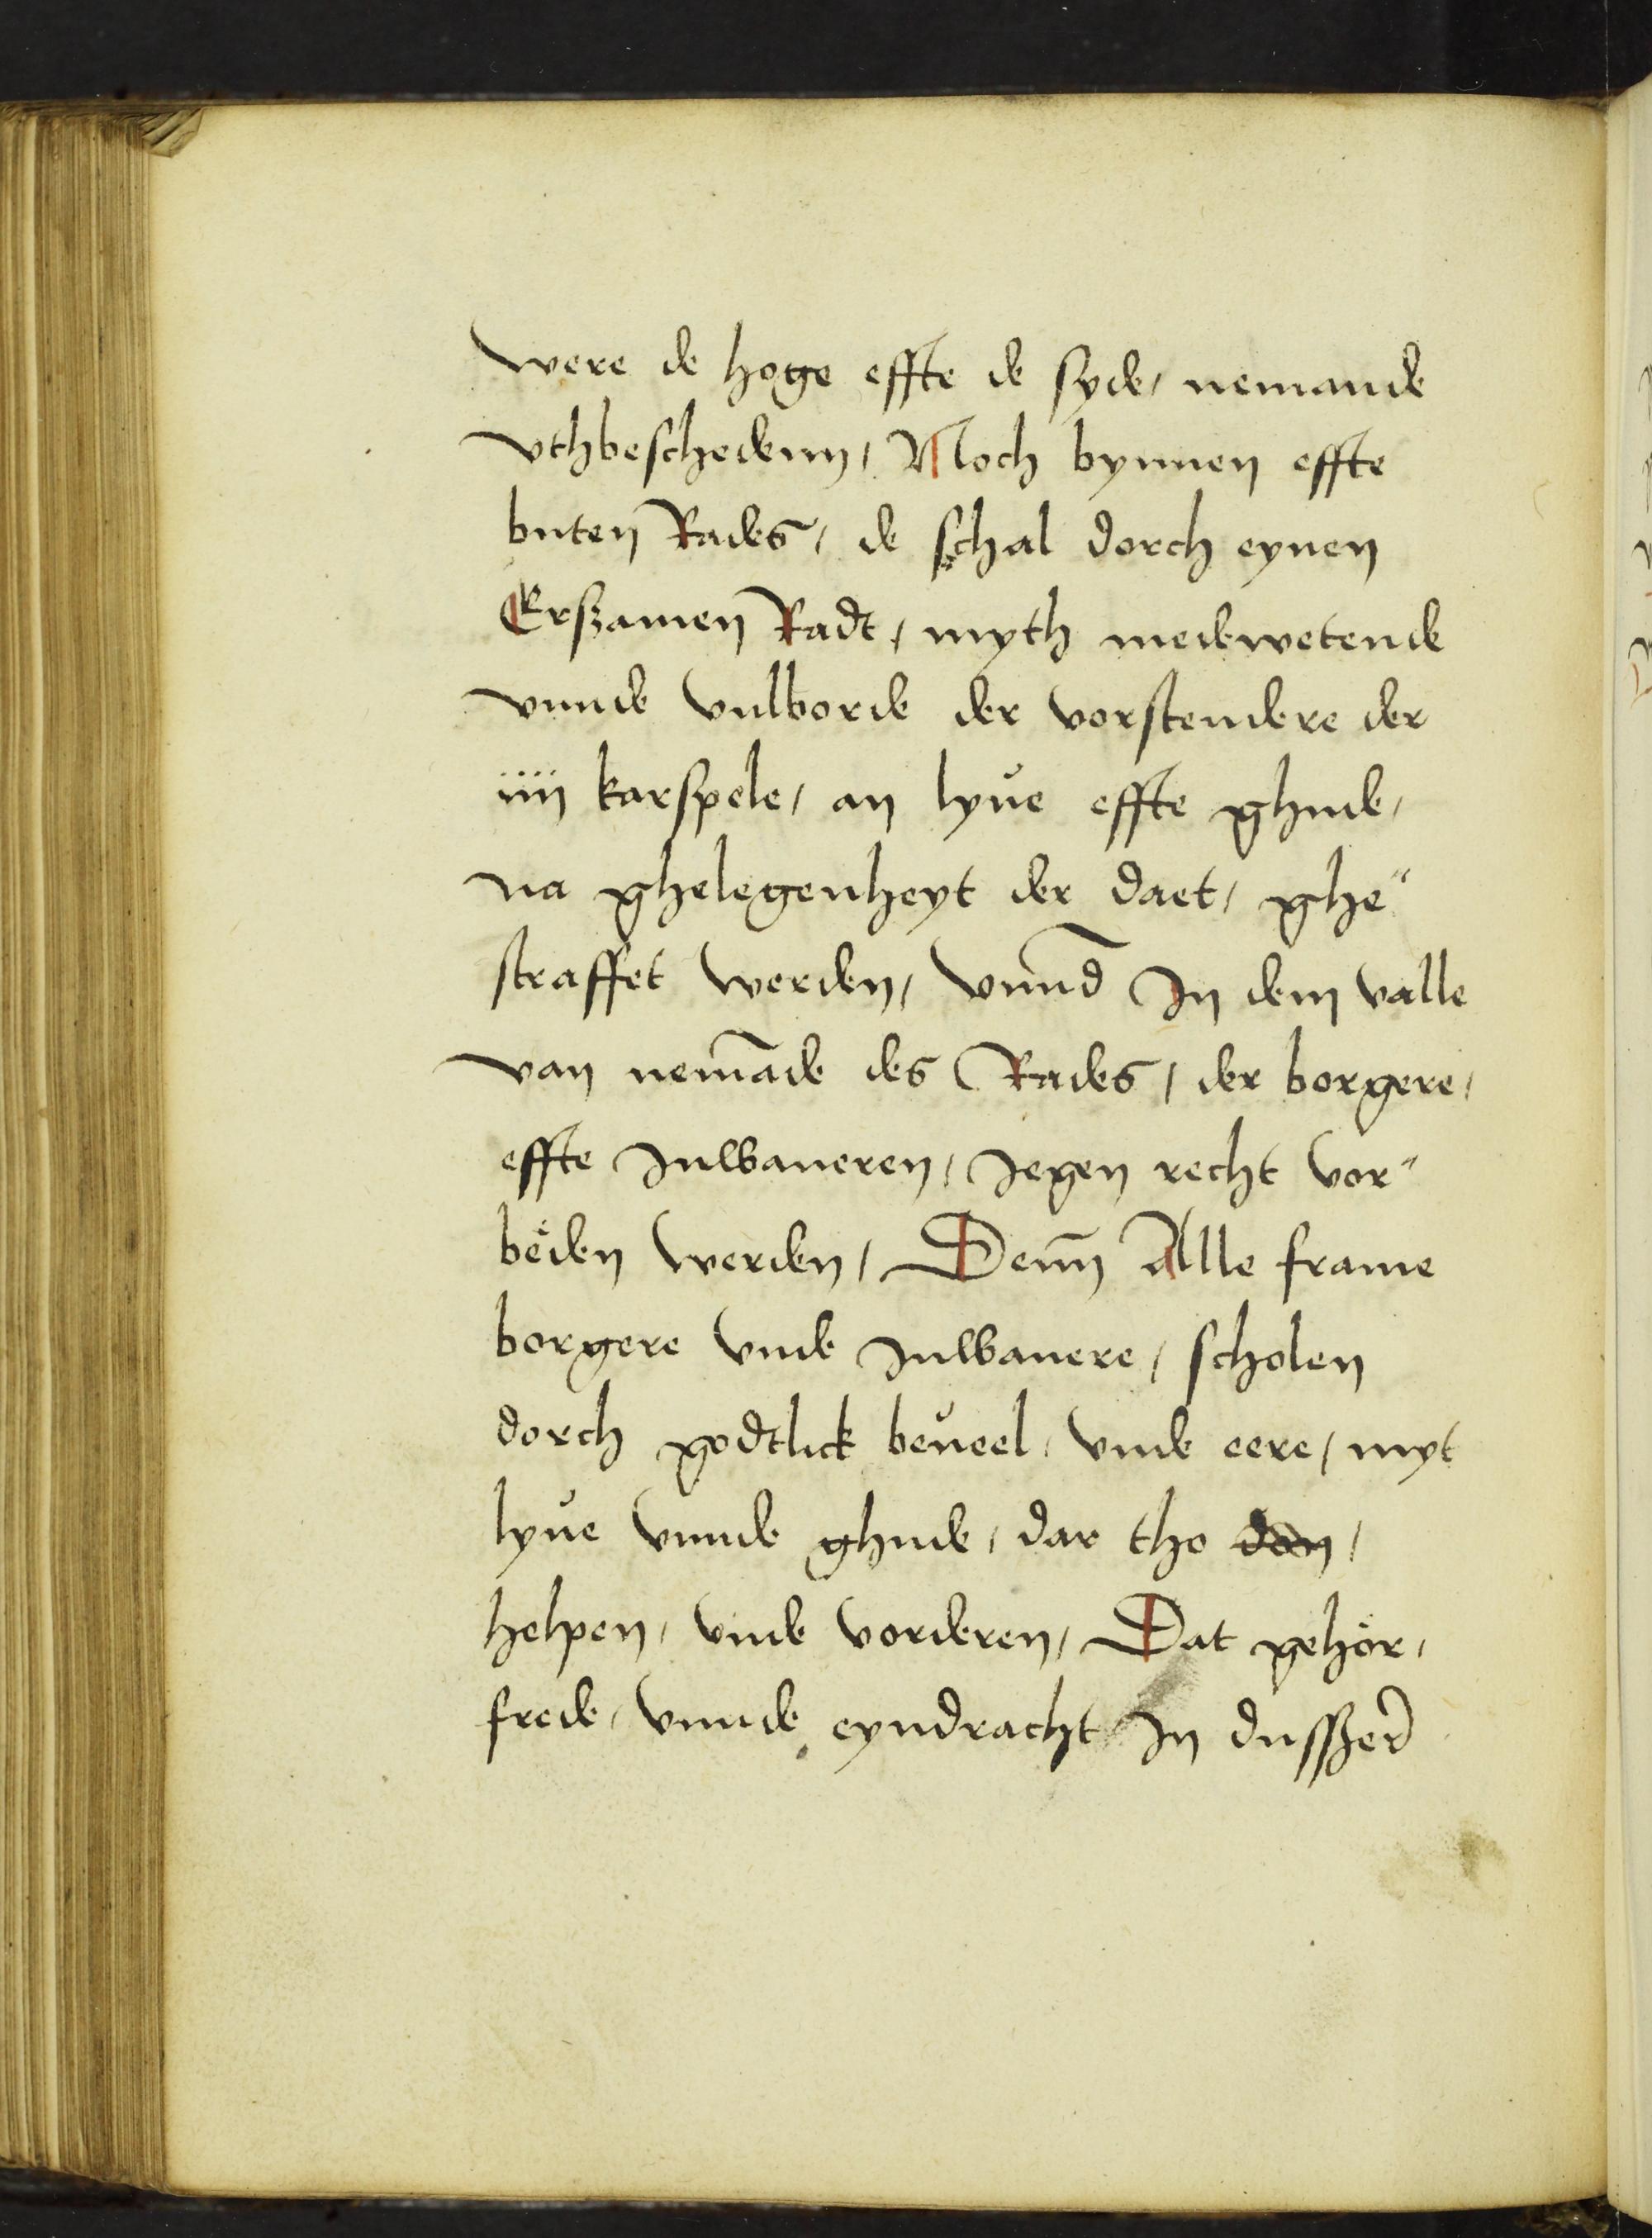 were de hoge effte de syde, nemande
vthbeschedenn, Noch bynnen effte
buten Rades, de schal dorch eynen
Erszamen Radt, myth medewetende
vnnde vulborde der vorstendere der
iiii karspele, an lyue effte ghude,
na ghelegenheyt der daet, ghe"
straffet werden, Vnnd In dem valle
van nemāde des Rades, der borgere,
effte Inwaneren, Jegen recht vor"
beden werden, Denn Alle frame
borgere vnde Inwanere, scholen
dorch godtlick beueel, vnde eere, myt
lyue vnnde ghude, dar tho
helpen, vnde vorderen, Dat gehör,
frede, vnnde eyndracht In dusszer